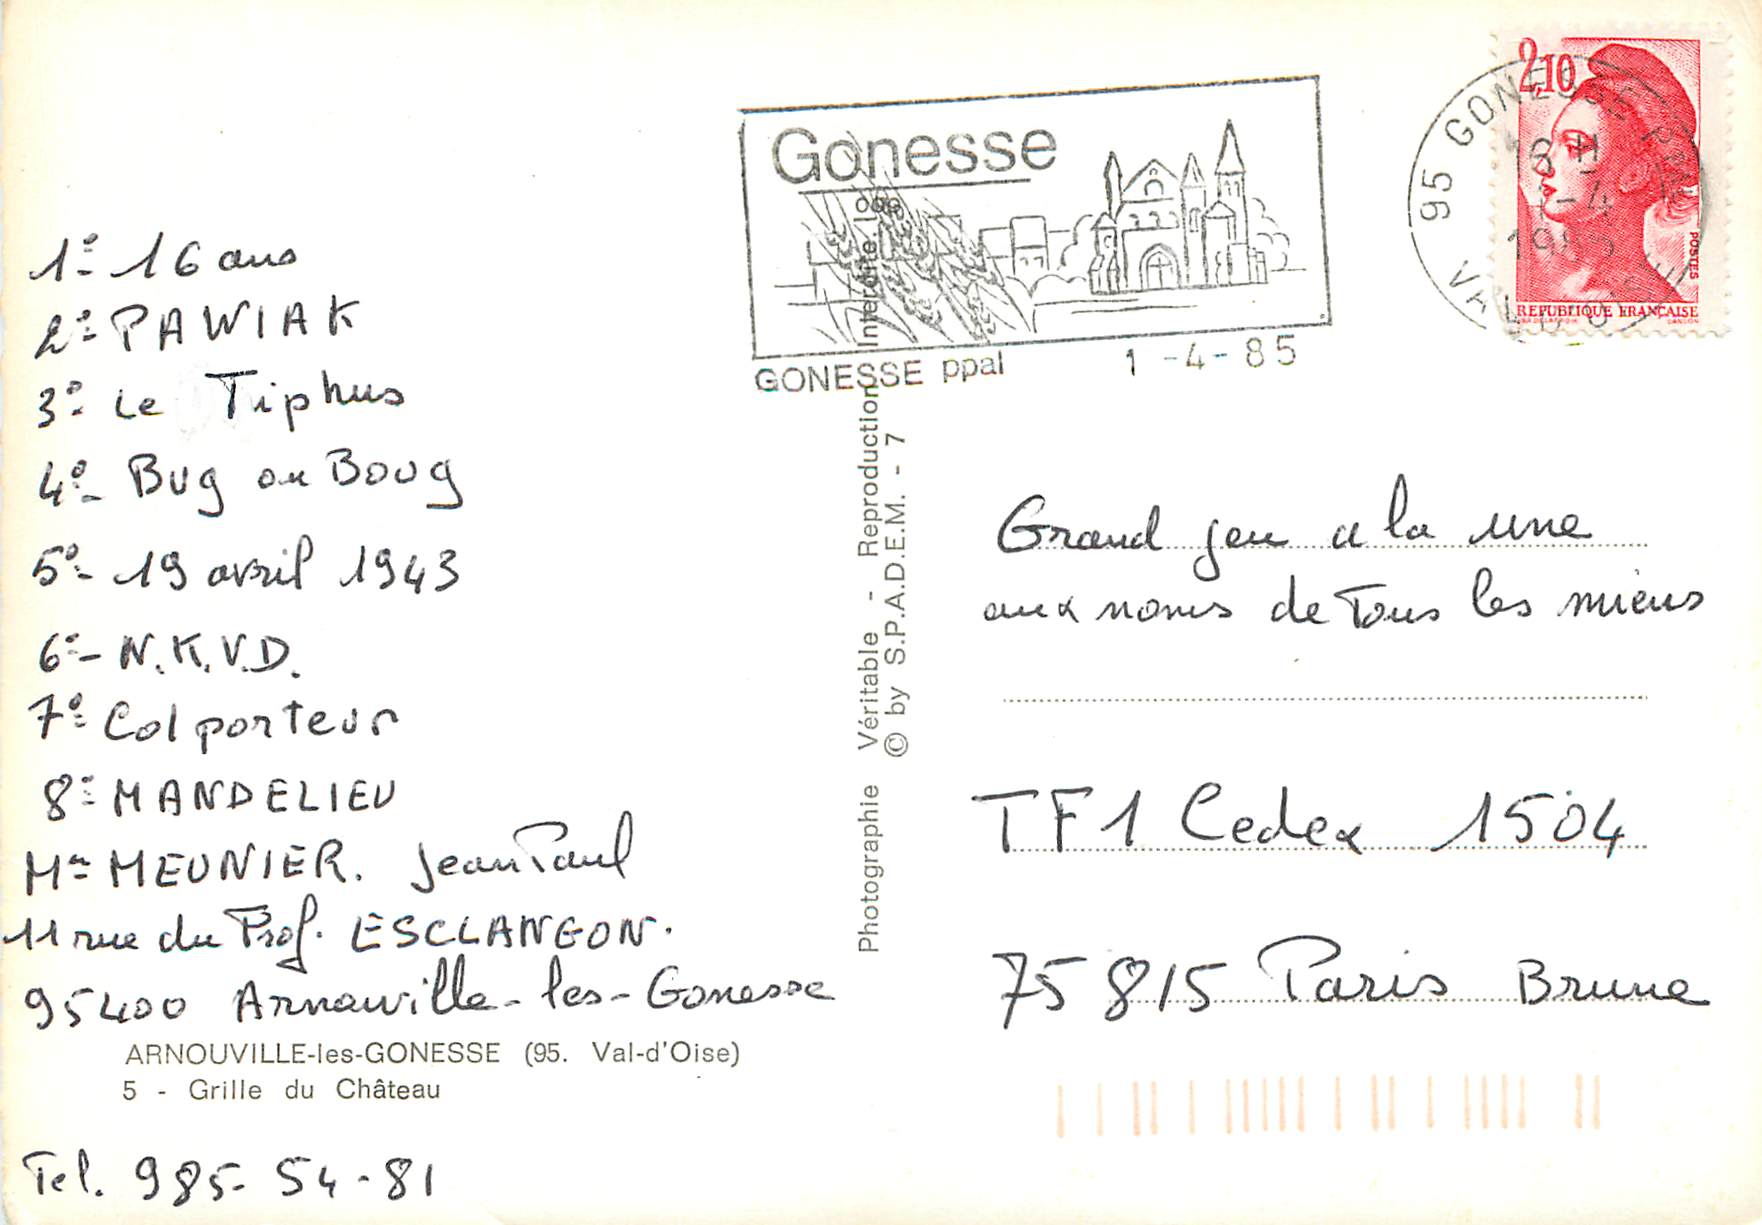 1º- 16 ans
2º- PAWIAK
3º- Le Tiphus
4º- Bug ou Boug
5º- 19 avril 1943
6º- N.K.V.D.
7º- Colporteur
8º- MANDELIEU
Mr MEUNIER. Jean Paul
11 rue du Prof. ESCLANGON.
95400 Arnouville-les-Gonesse
ARNOUVILLE-les-GONESSE (95. Val-d'Oise)
5 - Grille du Château
Tel. 985-54-81
Gonesse
GONESSE ppal 1-4-85
Photographie Véritable - Reproduction Interdite.
© by S.P.A.D.E.M. - 7
95 GONESSE PPAL
18 H
1-4
1985
VAL D'OISE
2,10
POSTES
REPUBLIQUE FRANÇAISE
Grand jeu a la une
aux noms de Tous les miens
TF1 Cedex 1504
75815 Paris Brune